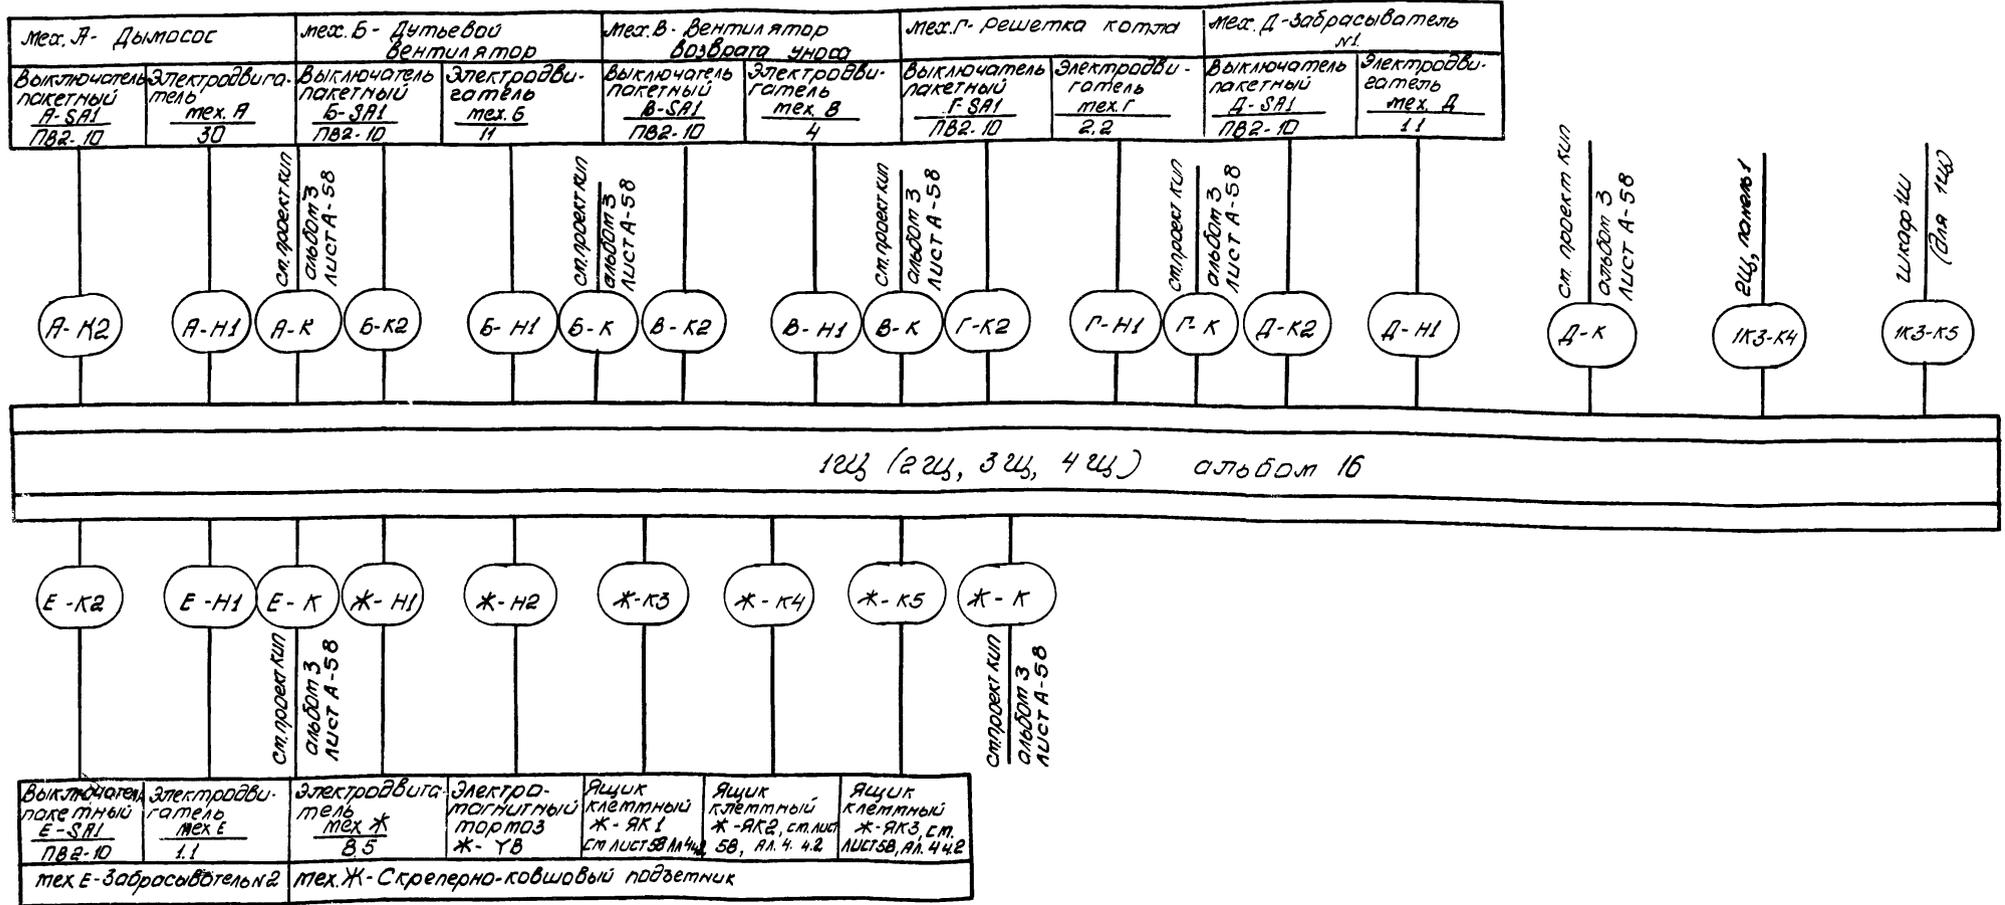 мех. А- Дымосос
мех. Б - Дутьевой
вентилятор
мех. В- Вентилятор
возврата уноса
мех. Г- решетка котла
мех. Д -Забрасыватель
N1.
Выключатель
пакетный
А-SA1
ПВ2-10
Электродвига-
тель
мех. А
30
Выключатель
пакетный
Б-SA1
ПВ2-10
Электродви-
гатель
мех. Б
11
Выключатель
пакетный
В-SA1
ПВ2-10
Электродви-
гатель
мех. В
4
Выключатель
пакетный
Г-SA1
ПВ2-10
Электродви-
гатель
мех. Г
2.2
Выключатель
пакетный
Д-SA1
ПВ2-10
Электродви-
гатель
мех. Д
1.1
см. проект кип
альбом 3
лист А-58
см. проект кип
альбом 3
лист А-58
см. проект кип
альбом 3
лист А-58
см. проект кип
альбом 3
лист А-58
см. проект кип
альбом 3
лист А-58
2Щ, панель 1
шкаф 1Ш
(для 1Щ)
А-К2
А-Н1
А-К
Б-К2
Б-Н1
Б-К
В-К2
В-Н1
В-К
Г-К2
Г-Н1
Г-К
Д-К2
Д-Н1
Д-К
1К3-К4
1К3-К5
1Щ (2Щ, 3Щ, 4Щ) альбом 16
Е-К2
Е-Н1
Е-К
Ж-Н1
Ж-Н2
Ж-К3
Ж-К4
Ж-К5
Ж-К
см. проект кип
альбом 3
лист А-58
см. проект кип
альбом 3
лист А-58
Выключатель
пакетный
Е-SA1
ПВ2-10
Электродви-
гатель
мех Е
1.1
Электродвига-
тель
мех Ж
8.5
Электро-
магнитный
тормоз
Ж- YB
Ящик
клеммный
Ж-ЯК1
см лист 58 Ал 4 ч.2
Ящик
клеммный
Ж-ЯК2, см. лист
58, Ал. 4. ч.2
Ящик
клеммный
Ж-ЯК3, см.
лист 58, Ал. 4 ч.2
мех Е-Забрасыватель N2
мех. Ж- Скреперно-ковшовый подъемник